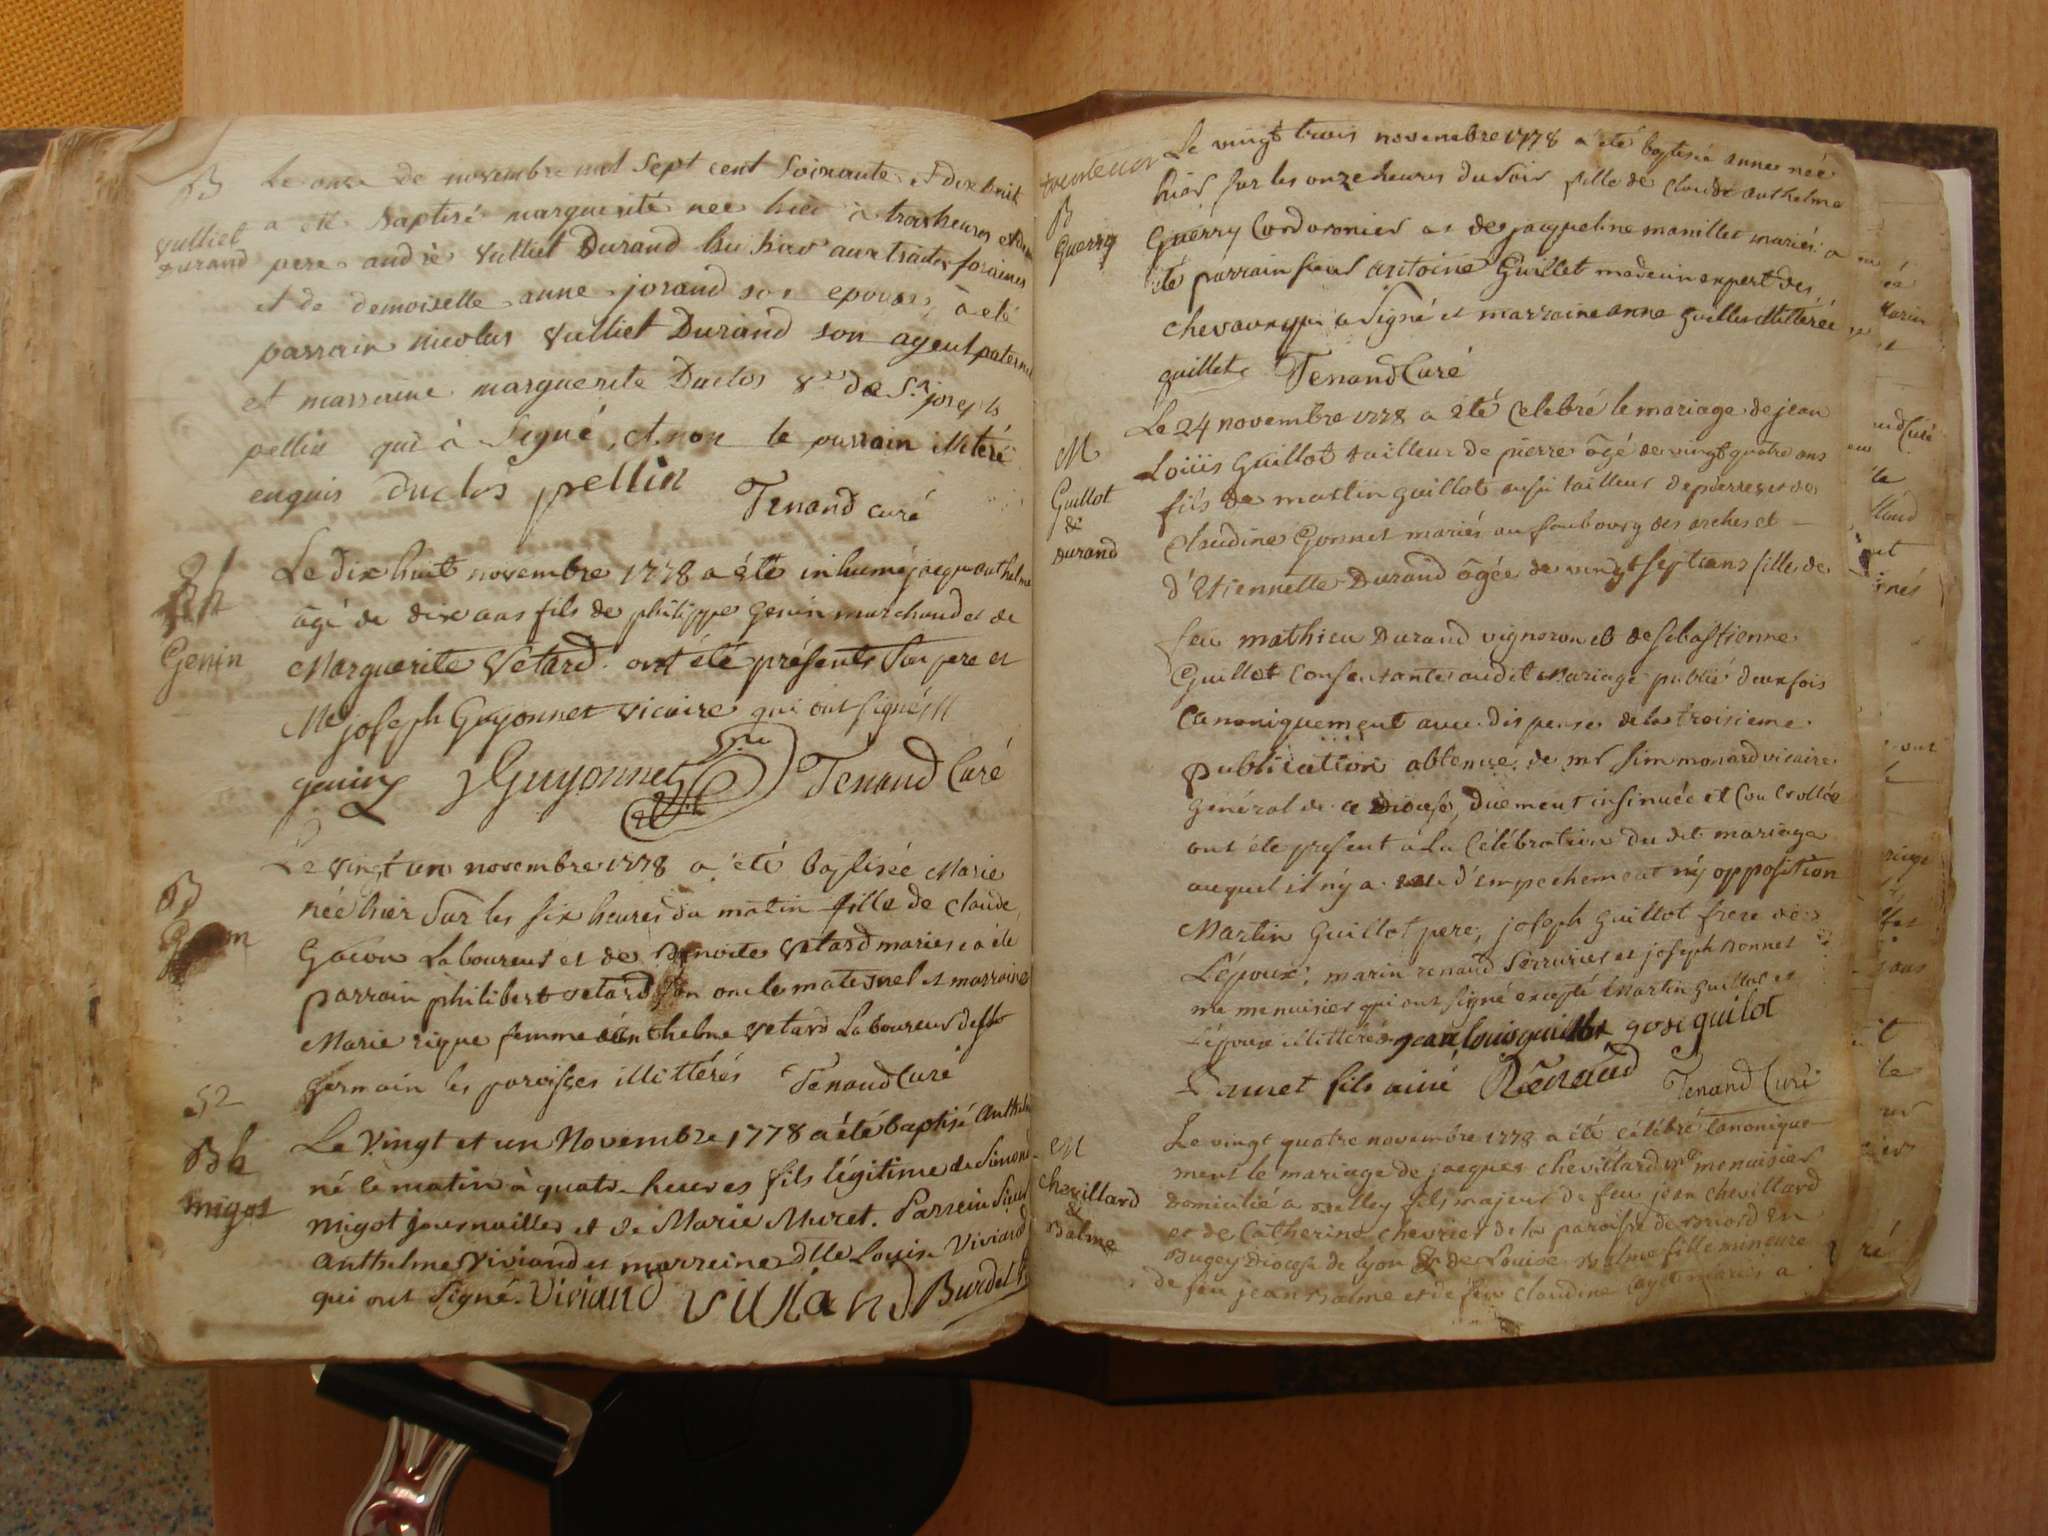 B
Vulliet
Durand
Le onze de novembre mil sept cent soixante et dix huit
a été baptisé marguerite née hier à trois heures
pere andré Vulliet Durand aux traites foraines
et de demoiselle anne jorand son epouse, à eté
parrain nicolas Vulliet Durand son ayeul paternel
et marraine marguerite Duclos de St joseph
pellin qui à signé, et non le parrain illiteré
enquis duclos pellin
Tenand curé
Genin
Le dix huit novembre 1778 a été inhumé jacque anthelme
âgé de dix ans fils de philippe Genin marchand et de
Marguerite Vetard. ont été présents son pere et
Me joseph Guyonnet vicaire qui ont signés
genin JGuyonnet Tenand Curé
B
Le vingt un novembre 1778 a été baptisée Marie
née hier sur les six heures du matin fille de Claude
Gacon Laboureur et de Benoite Vetard mariés a été
parrain philibert vetard son oncle maternel et marraine
Marie rique femme d'anthelme Vetard Laboureur de St
germain les paroisses illittérés Tenand Curé
52
Bh
migot
Le Vingt et un Novembre 1778 a été baptisé Anthelme
né le matin à quatre heures fils légitime de Simond
Migot journailler et de Marie Muret. Parrein Sieur
Anthelme Viviand et marreine dlle Louise Viviand
qui ont signé. Viviand Viviand Burdet
B
Guerry
Le vingt trois novembre 1778 a été baptisée anne née
hier sur les onze heures du soir fille de Claude anthelme
Guerry Cordonnier et de jacqueline manillet mariés. a
été parrain sieur antoine Guillet medecin expert des
chevaux qui a signé et marraine anne guillet illitérée
guillet Tenand Curé
M
Guillot
&
Durand
Le 24 novembre 1778 a été Celebré le mariage de jean
Loüis Guillot tailleur de pierre âgé de vingt quatre ans
fils de martin guillot aussi tailleur de pierres et de
Claudine Gonnet mariés au faubourg des arches et
d'Etiennette Durand âgée de vingt sept ans fille de
feu mathieu Durand vigneron et de sebastienne
Guillot Consentante audit Mariage publié deux fois
Canoniquement avec dispense de la troisieme
publication obtenue de mr simmonard vicaire
général de ce Diocese, Duement insinuée et Controllée
ont été présent à la Célébration du dit mariage
auquel il n'y a eu d'empechement ny opposition
Martin Guillot pere, joseph Guillot frere de
L'époux, marin renaud serrurier et joseph Bonnet
me menuisier qui ont signé excepté Martin guillot et
L'épouse illittérés jean louis guillot gose guilot
Bonnet fils ainé Renaud Tenand Curé
M
Chevillard
&
Balme
Le vingt quatre novembre 1778 a été célébré Canonique
ment le mariage de jacques Chevillard me menuisier
domicilié a Belley fils majeur de feu jean Chevillard
et de Catherine chevrier de la paroisse de Briord En
Bugey Diocese de lyon & de Louise Balme fille mineure
de feu jean Balme et de feue Claudine mariés a